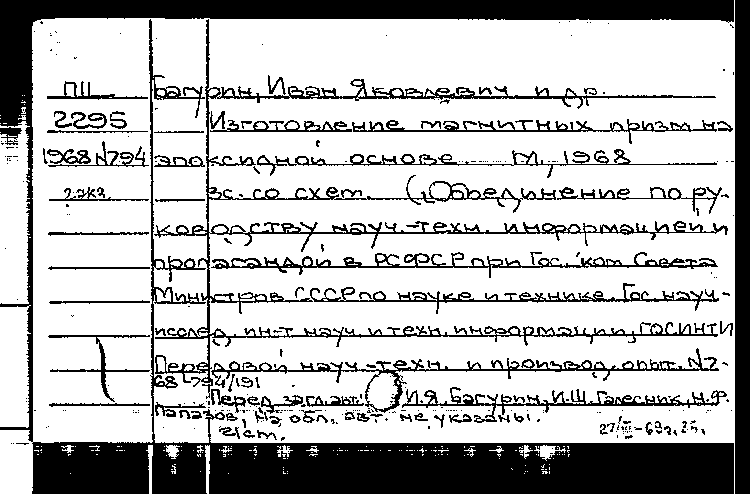 ПII Багурин, Иван Яковлевич и др.
2295 Изготовление магнитных призм на
1968 N794 эпоксидной основе. М., 1968
2 экз. 3с. со схем. (Объединение по ру-
ководству науч.-техн. информацией и
пропагандой в РСФСР при Гос. ком. Совета
Министров СССР по науке и технике. Гос. науч-
исслед. ин-т науч. и техн. информации, ГОСИНТИ
Передовой науч.-техн. и производ. опыт. N2-
68-794/191
Перед загл. авт.: И.Я. Багурин, И.Ш. Галесник, Н.Ф.
Папазов, На обл. авт. не указаны.
21 cm. 27/III-69г.